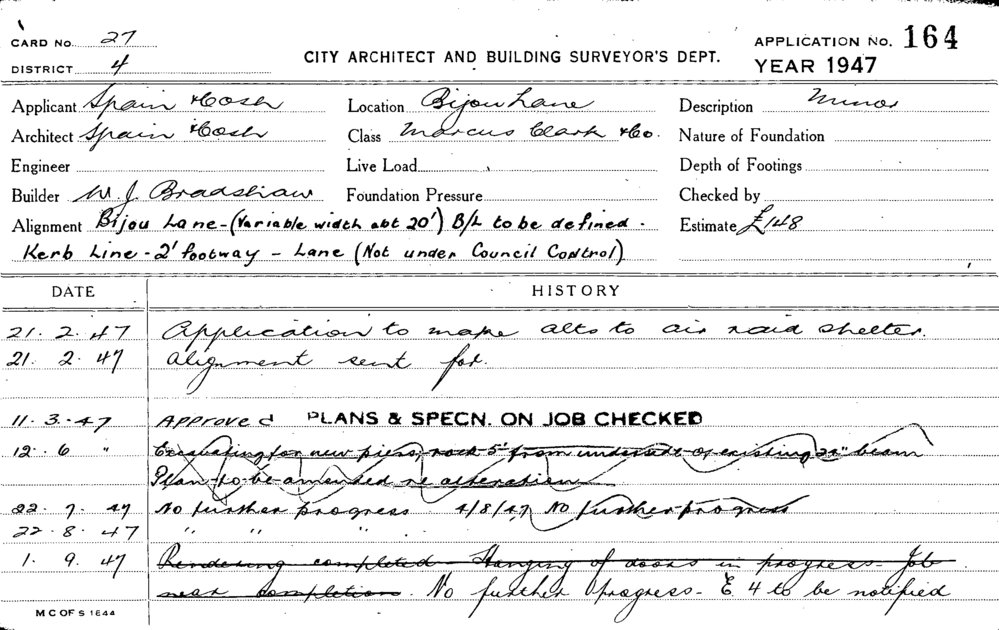 CARD No. 27
DISTRICT 4
CITY ARCHITECT AND BUILDING SURVEYOR'S DEPT.
APPLICATION No. 164
YEAR 1947
Applicant Spain & Cosh Location Bijou Lane Description Minor
Architect Spain & Cosh Class Marcus Clark & Co. Nature of Foundation
Engineer Live Load Depth of Footings
Builder W. J. Bradshaw Foundation Pressure Checked by
Alignment Bijou Lane - (Variable width abt 20') B/L to be defined. Estimate £148
Kerb Line - 2' footway - Lane (Not under Council Control)
DATE HISTORY
21. 2. 47 Application to make alts to air raid shelter.
21. 2. 47 Alignment sent for.
11. 3. 47 Approved PLANS & SPECN. ON JOB CHECKED
12. 6 " Excavating for new piers, rock 5' from underside of existing 22" beam
Plan to be amended re alteration
22. 7. 47 No further progress 4/8/47 No further progress
22. 8. 47 " " "
1. 9. 47 Rendering completed - Hanging of doors in progress - Job
near completion. No further progress - E. 4 to be notified
M C OF S 1644